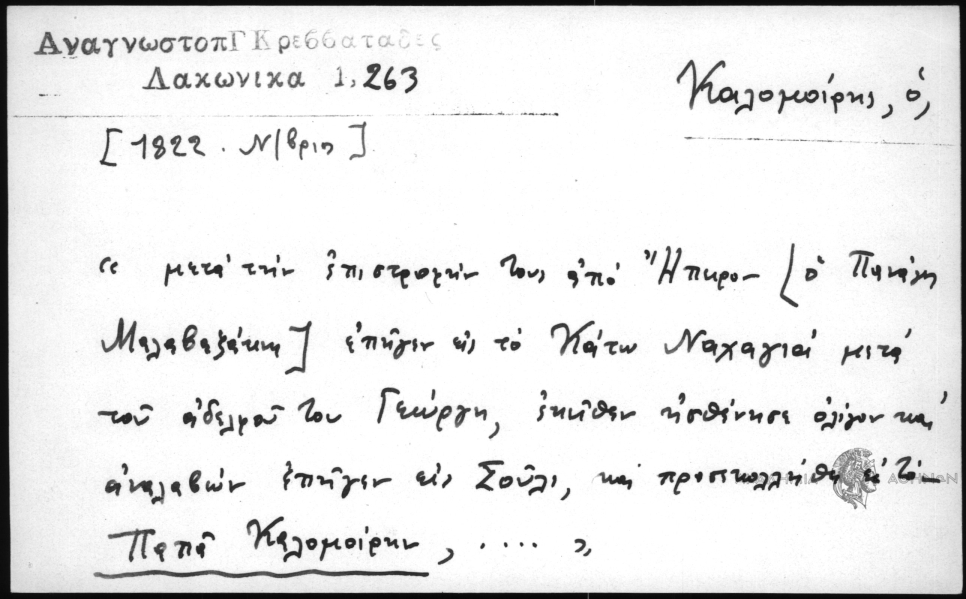 ΑναγνωστοπΓΚρεββαταδες
Λακωνικα 1, 263
Καλομοίρης, ὁ,
[1822. Ν/βριο]
« μετά τήν ἐπιστροφήν τους ἀπό Ἤπειρον [ὁ Πανάγης
Μαλαβαζάκης] ἐπῆγεν εἰς τό Κάτω Ναχαγιέ μετά
τοῦ ἀδελφοῦ του Γεώργη, ἐκεῖθεν ἠσθένησε ὀλίγον καί
ἀναλαβών ἐπῆγεν εἰς Σοῦλι, καί προσεκολλήθη εἰς τό
Παπᾶ Καλομοίρην, .... »
ΑΘΗΝΩΝ